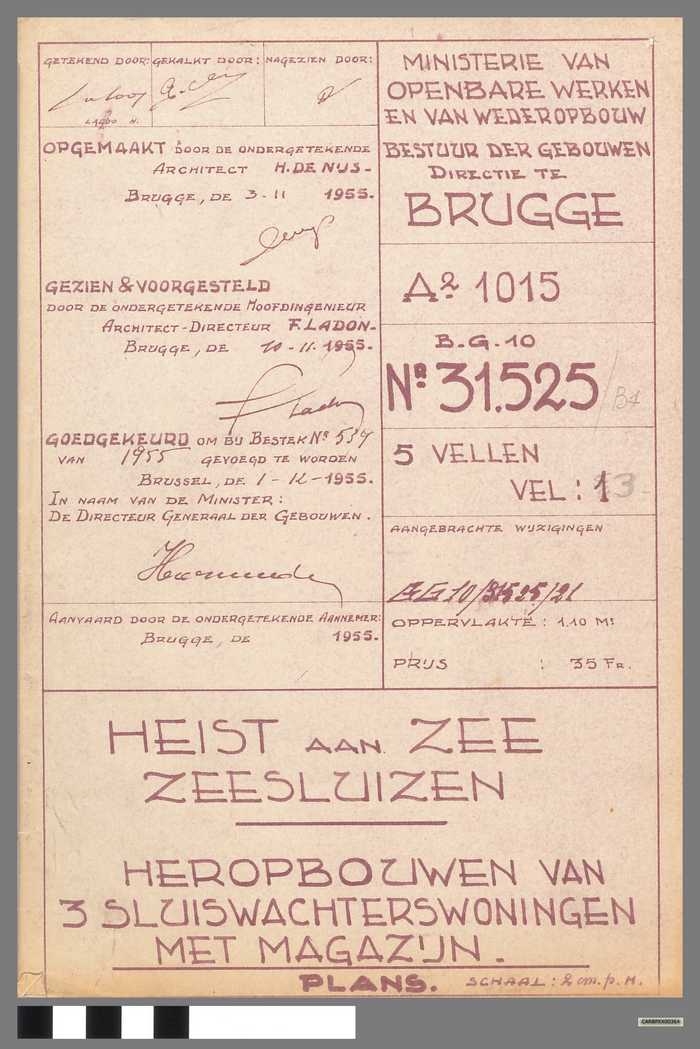 GETEKEND DOOR: GEKALKT DOOR: NAGEZIEN DOOR:
LADOO H.
OPGEMAAKT DOOR DE ONDERGETEKENDE
ARCHITECT H. DE NIJS-
BRUGGE, DE 3-11 1955.
GEZIEN & VOORGESTELD
DOOR DE ONDERGETEKENDE HOOFDINGENIEUR
ARCHITECT-DIRECTEUR F. LADON-
BRUGGE, DE 10-11-1955.
GOEDGEKEURD OM BIJ BESTEK Nº 539
VAN 1955 GEVOEGD TE WORDEN
BRUSSEL, DE 1-12-1955.
IN NAAM VAN DE MINISTER:
DE DIRECTEUR GENERAAL DER GEBOUWEN.
AANVAARD DOOR DE ONDERGETEKENDE AANNEMER:
BRUGGE, DE 1955.
MINISTERIE VAN
OPENBARE WERKEN
EN VAN WEDEROPBOUW
BESTUUR DER GEBOUWEN
DIRECTIE TE
BRUGGE
A2 1015
B.G.10
Nº 31.525/B4
5 VELLEN
VEL: 13-
AANGEBRACHTE WIJZIGINGEN
BG10/31525/21
OPPERVLAKTE: 1.10 M²
PRIJS : 35 FR.
HEIST AAN ZEE
ZEESLUIZEN
HEROPBOUWEN VAN
3 SLUISWACHTERSWONINGEN
MET MAGAZIJN.
PLANS. SCHAAL: 2 cm. p. M.